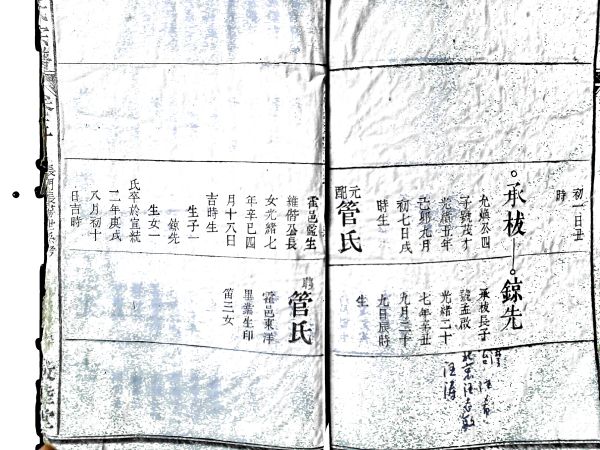 初一日丑
時
承柭
允煥公四
子號茂才
光緒五年
己卯九月
初七日戌
時生
元配
管氏
霍邑監生
維偕公長
女光緒七
年辛巳四
月十八日
吉時生
生子一
鍄先
生女一
氏卒於宣統
二年庚戌
八月初十
日吉時
鍄先
承柭長子
號孟啟
光緒二十
七年辛丑
九月二十
九日辰時
生
聘
管氏
霍邑東洋
里業生印
笛三女
北京汪
汪濤